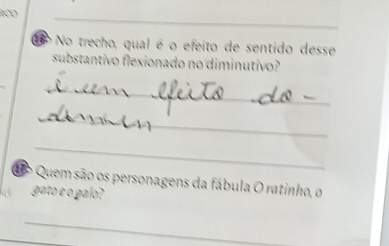 No trecho, qual é o efeito de sentido desse
substantivo flexionado no diminutivo?
É um efeito do -
diminu
Quem são os personagens da fábula O ratinho, o
gato e o galo?